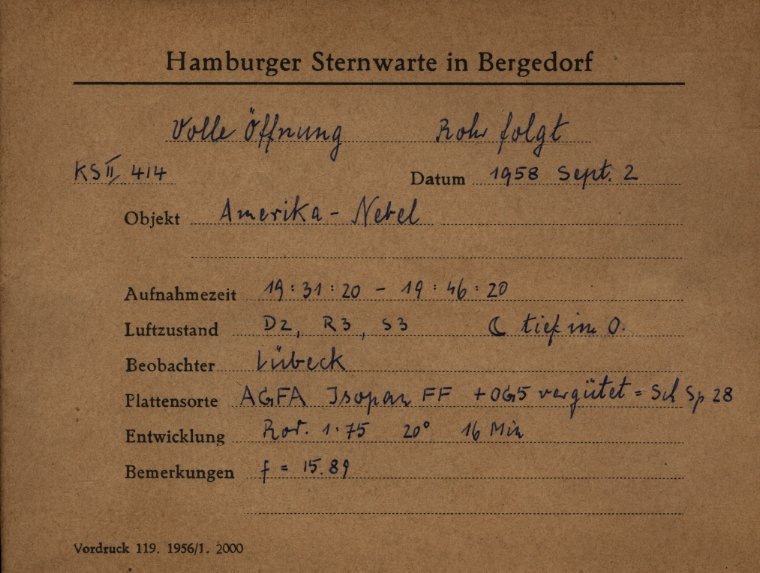 Hamburger Sternwarte in Bergedorf
Volle Öffnung Rohr folgt
KS II, 414 Datum 1958 Sept. 2
Objekt Amerika - Nebel
Aufnahmezeit 19:31:20 - 19:46:20
Luftzustand D2, R3, S3 ☾ tief im O.
Beobachter Lübeck
Plattensorte AGFA Isopan FF + OG5 vergütet = Sch Sp 28
Entwicklung Rod. 1:75 20° 16 Min
Bemerkungen f = 15.89
Vordruck 119. 1956/1. 2000